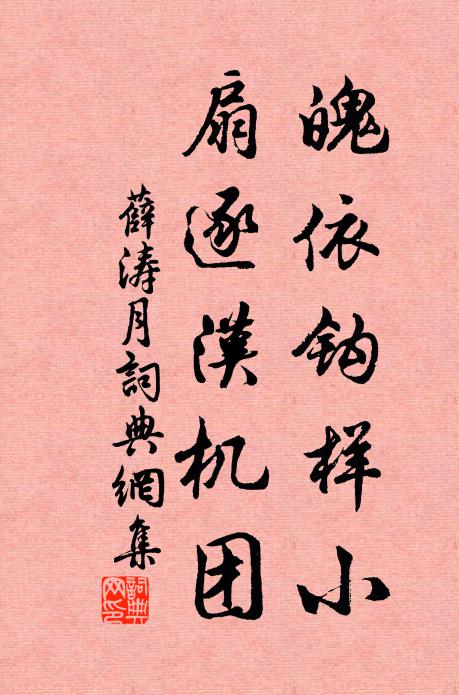 魄依钩样小
扇逐漢机团
薛涛月詞典網集
詞典网印